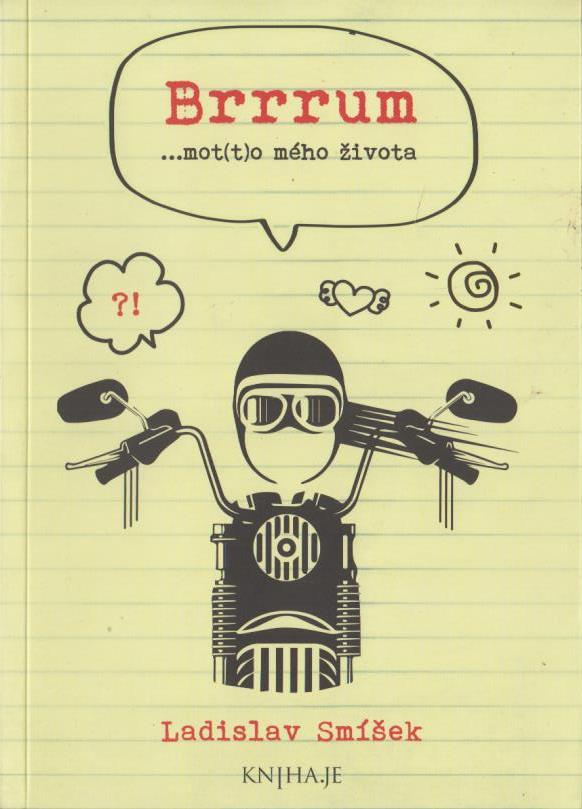 Brrrum
...mot(t)o mého života
?!
Ladislav Smíšek
KNIHA.JE